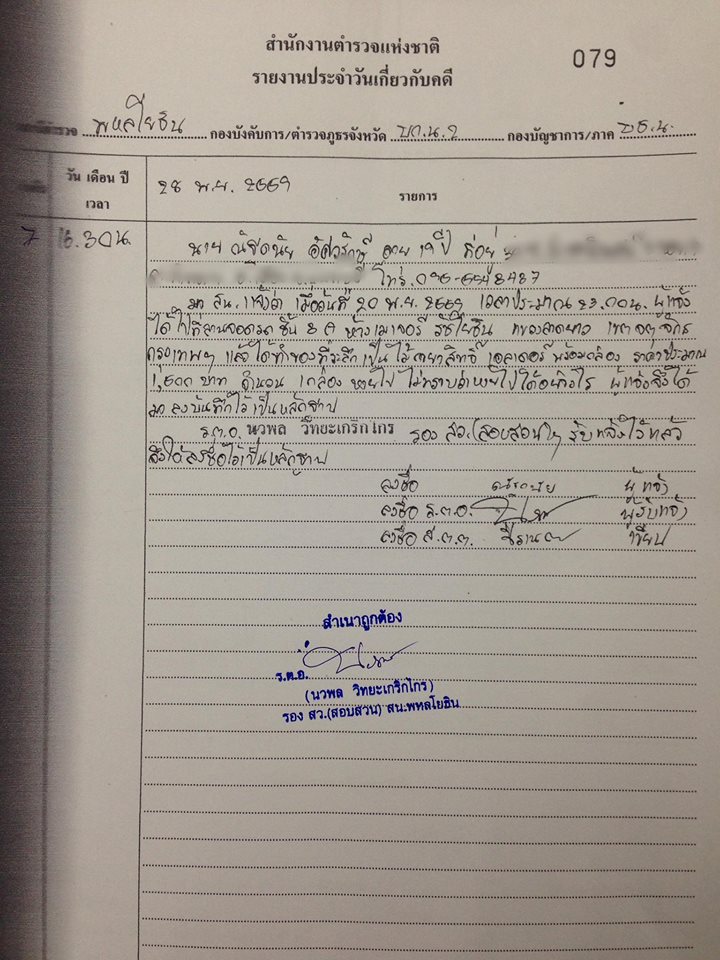 สำนักงานตำรวจแห่งชาติ
079
รายงานประจำวันเกี่ยวกับคดี
พหลโยธิน กองบังคับการ/ตำรวจภูธรจังหวัด บก.น.2 กองบัญชาการ/ภาค บช.น.
วัน เดือน ปี
เวลา
28 พ.ย. 2557
รายการ
7 16.30น.
นาย ณัชดนัย อายุ 19 ปี ที่อยู่
โทร.
มา สน. แจ้งว่า เมื่อวันที่ 20 พ.ย. 2557 เวลาประมาณ 23.00น. ผู้แจ้ง
ได้ไปที่ลานจอดรถ ชั้น 8 A ห้างเมเจอร์ รัชโยธิน แขวงลาดยาว เขตจตุจักร
กรุงเทพฯ แล้วได้ทำของที่ระลึกเป็นไม้กายาสิทธิ์ เอลเดอร์ พร้อมกล่อง ราคาประมาณ
1,500 บาท จำนวน 1 กล่อง หายไป ไม่ทราบว่าหายไปได้อย่างไร ผู้แจ้งจึงได้
มาลงบันทึกไว้เป็นหลักฐาน
ร.ต.อ. นวพล วิทยะเกริกไกร รอง สว.(สอบสวน)ฯ รับแจ้งไว้แล้ว
จึงได้ลงชื่อไว้เป็นหลักฐาน
ลงชื่อ ผู้แจ้ง
ลงชื่อ ร.ต.อ. ผู้รับแจ้ง
ลงชื่อ ส.ต.ต. เขียน
สำเนาถูกต้อง
ร.ต.อ.
(นวพล วิทยะเกริกไกร)
รอง สว.(สอบสวน) สน.พหลโยธิน